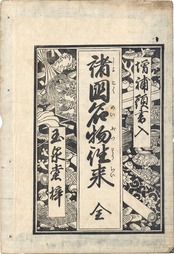 増補頭書入
諸國名物往来 全
しよこくめいぶつわうらい
玉泉堂梓